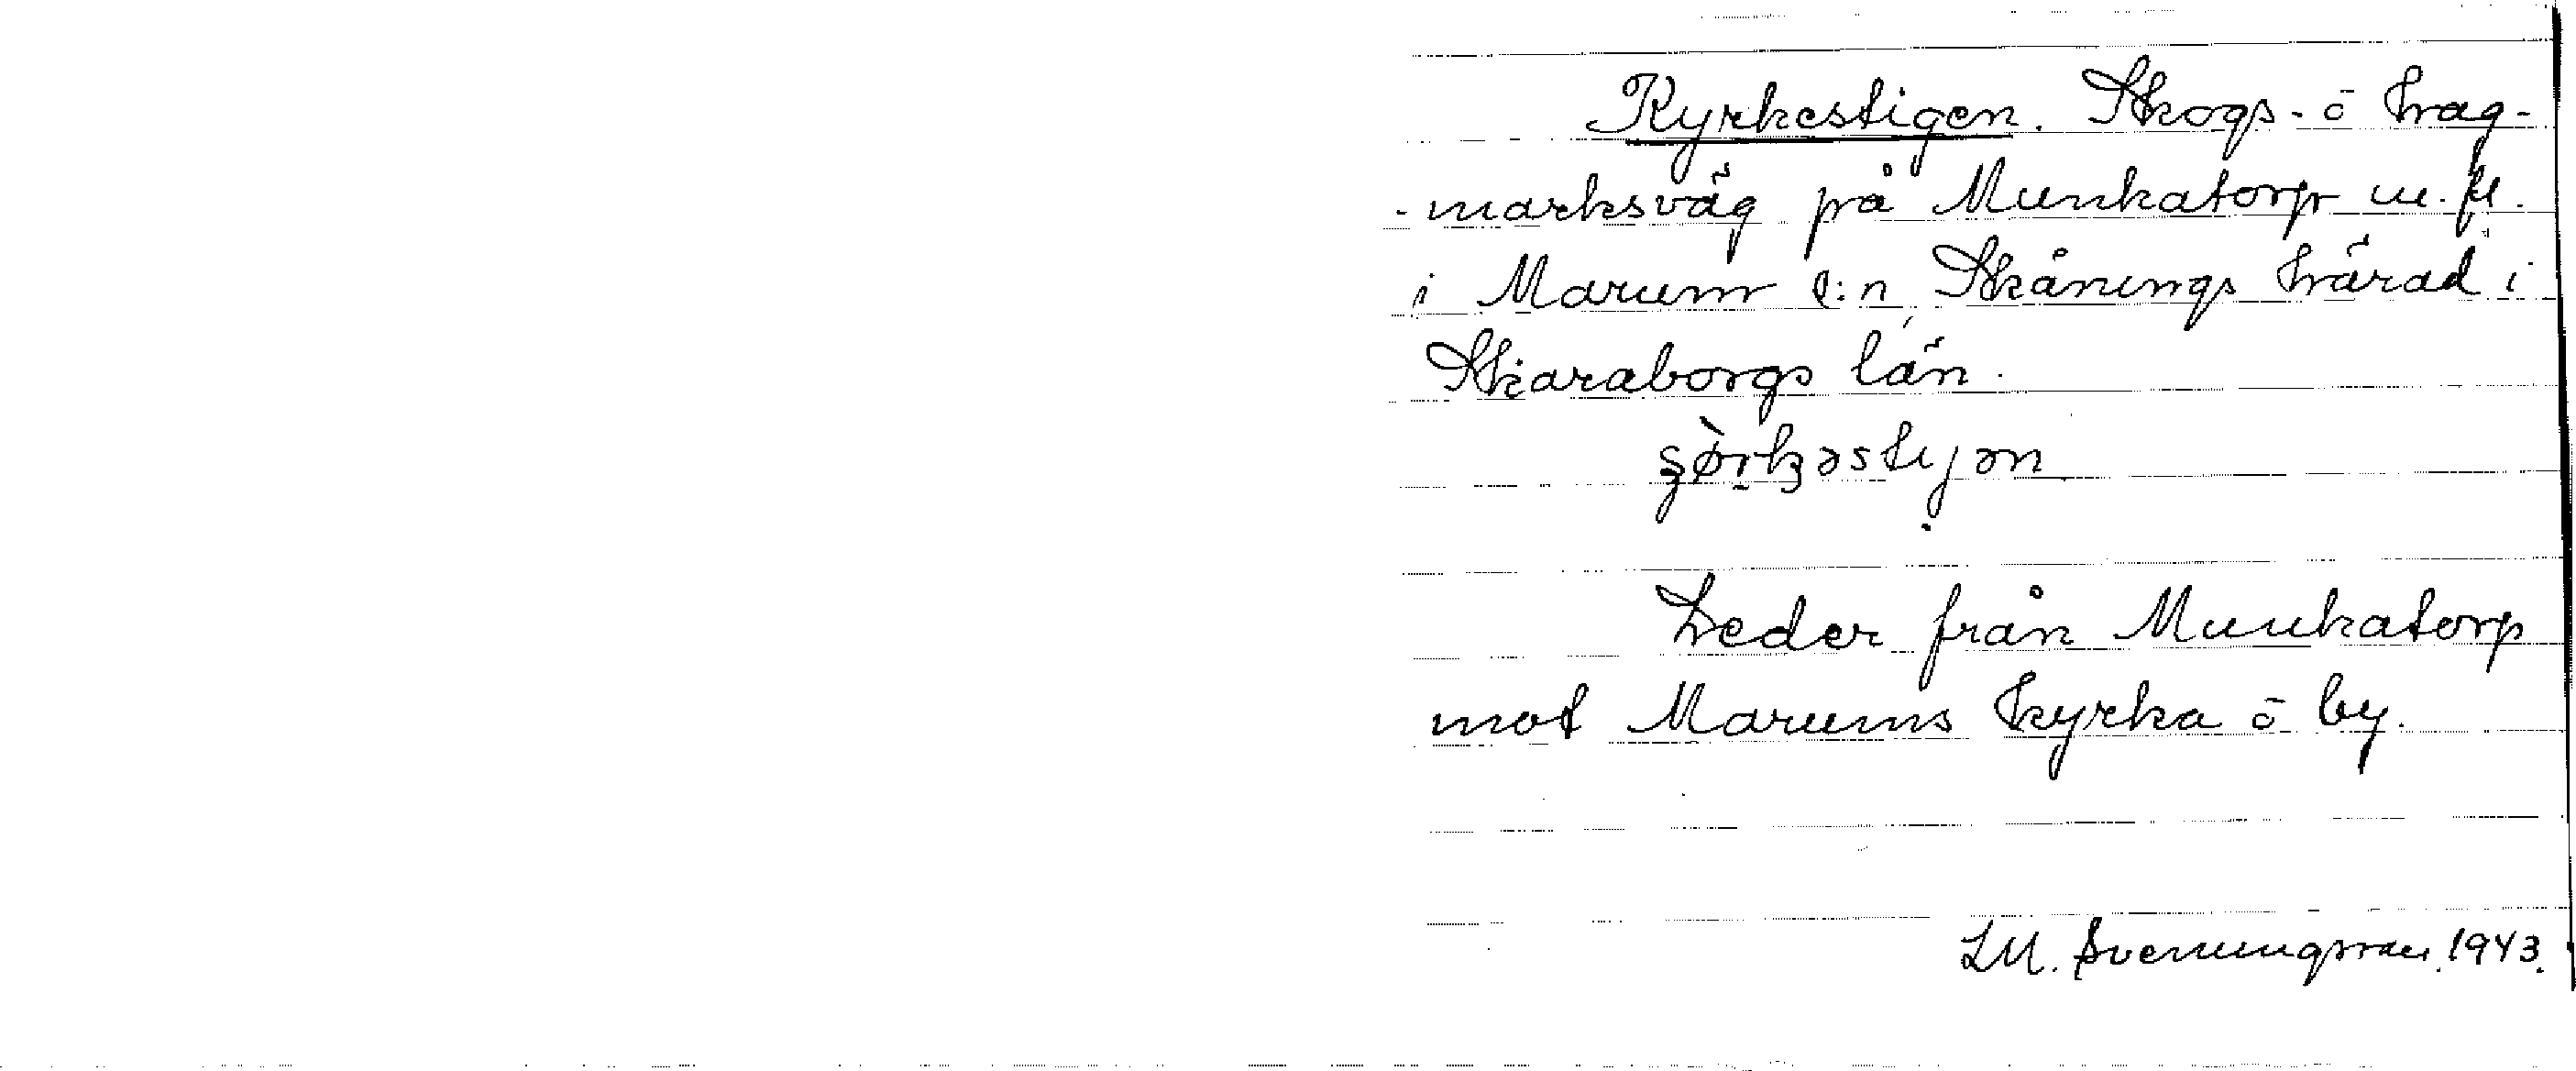 Kyrkestigen. Skogs- ō hag-
-marksväg på Munkatorp m. fl.
i Marum s:n, Skånings härad i
Skaraborgs län.
Leder från Munkatorp
mot Marums kyrka ō by.
LM. Svenungsson. 1943.